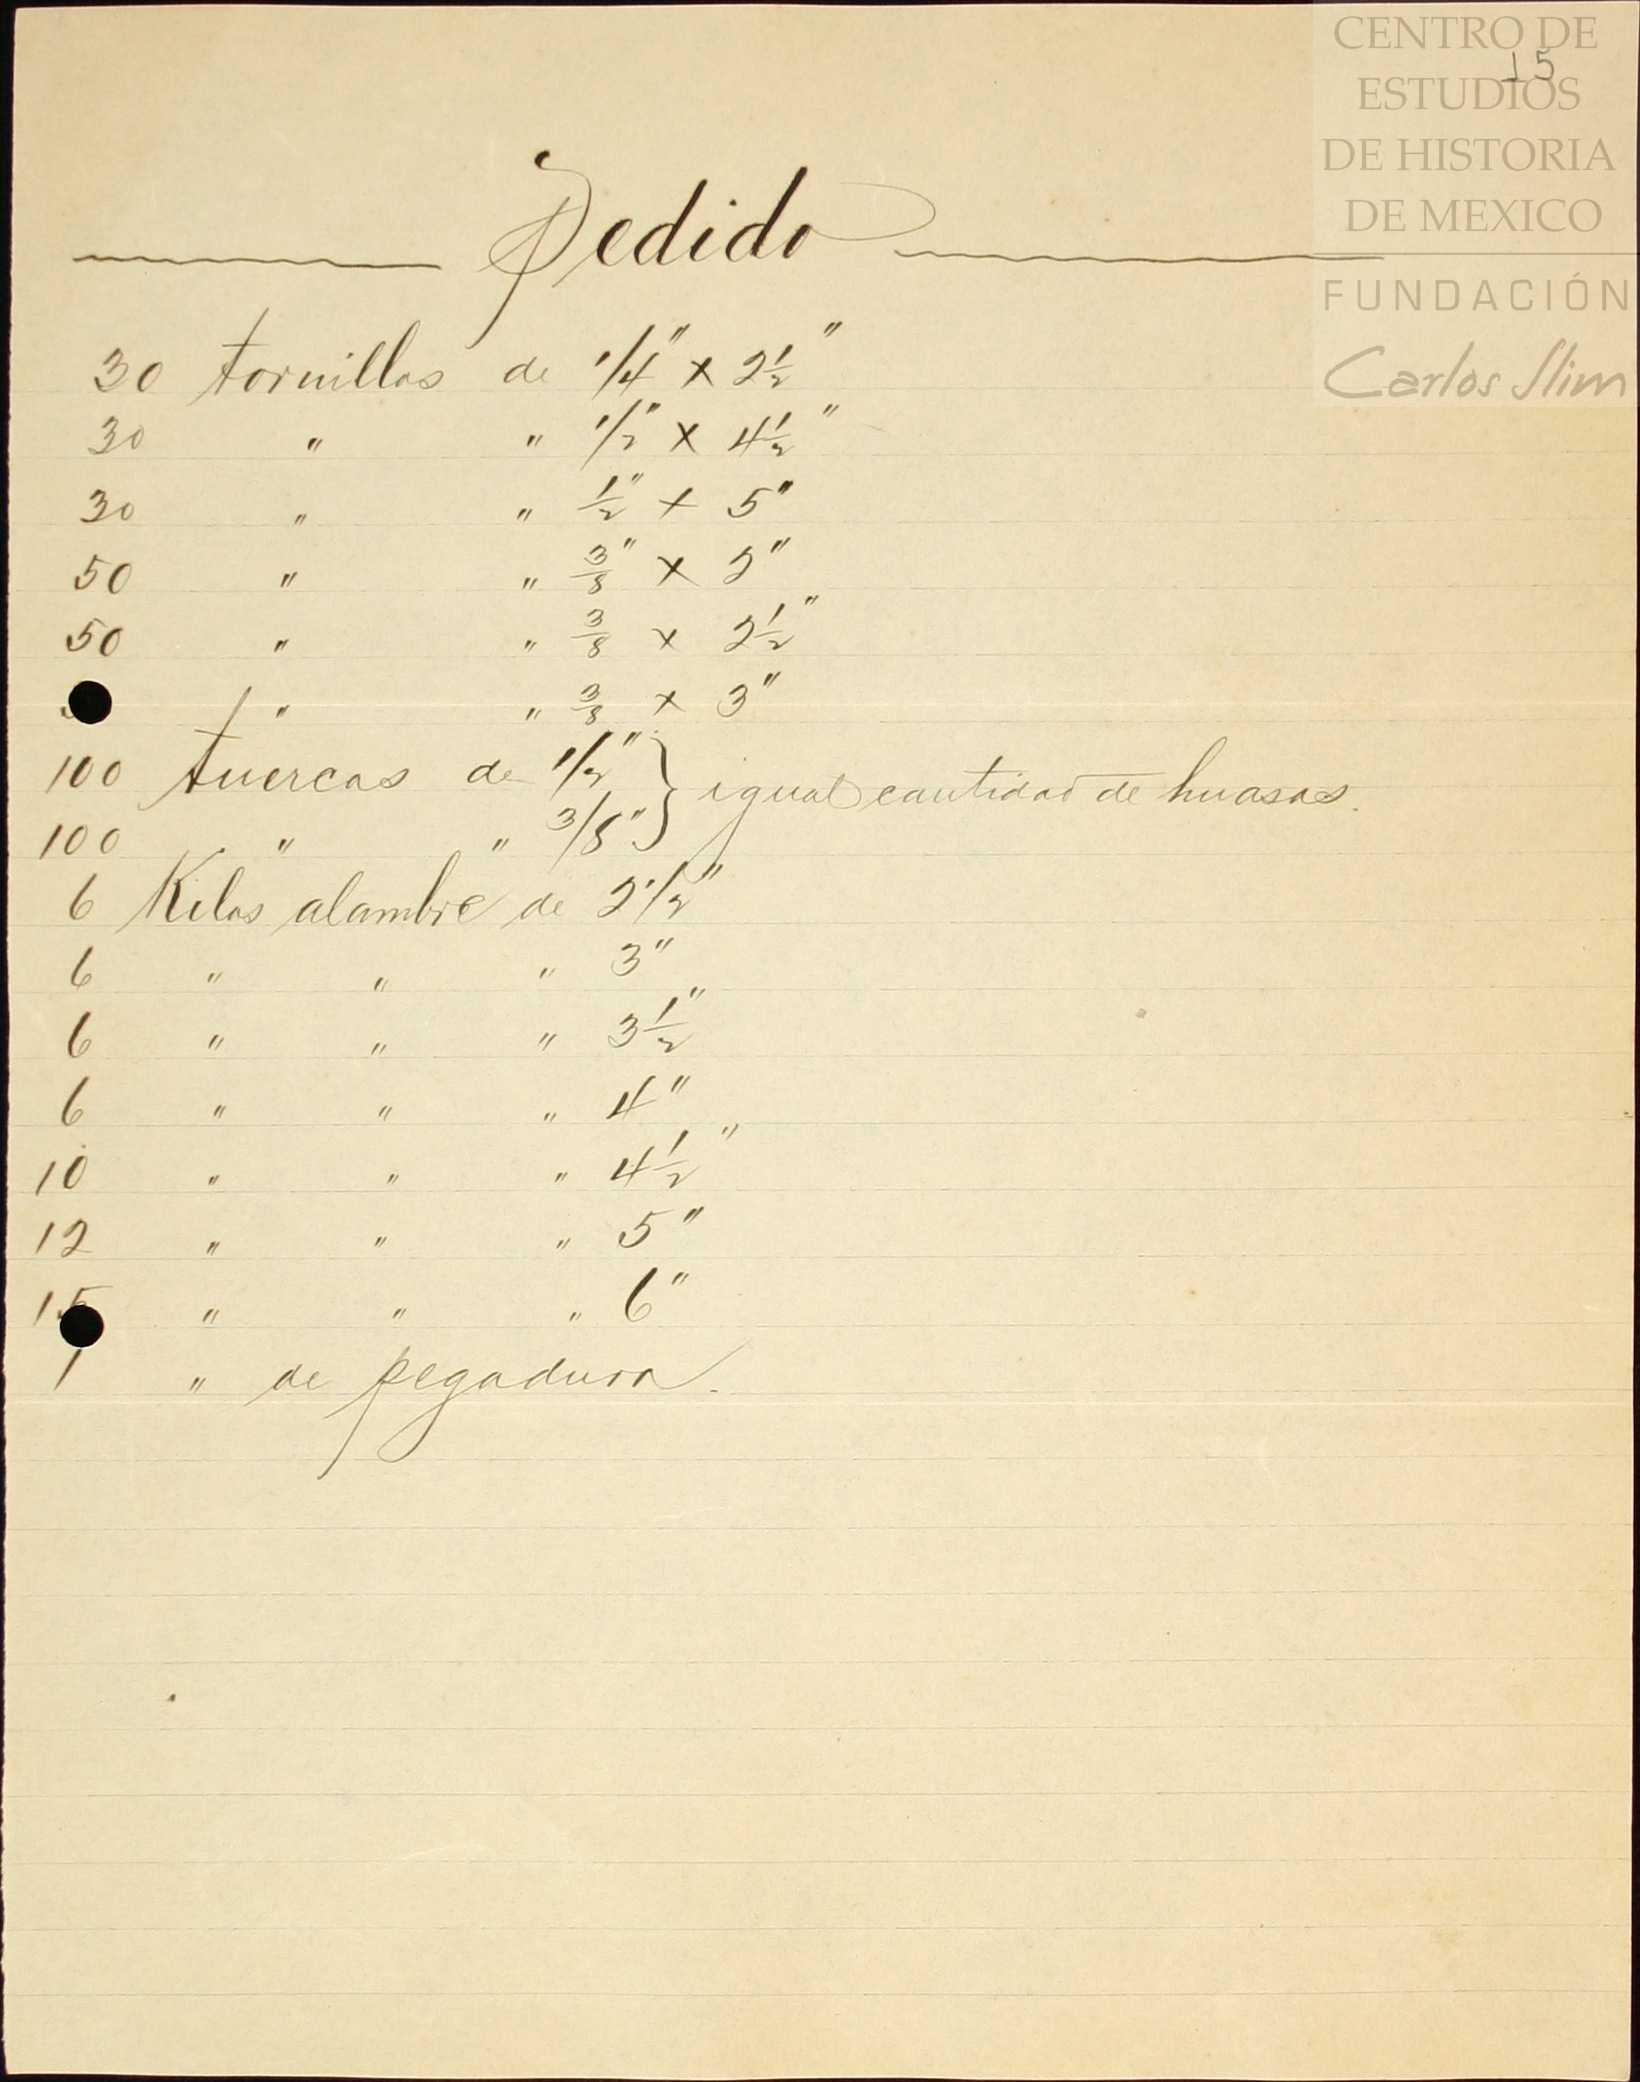 CENTRO DE
15
ESTUDIOS
DE HISTORIA
DE MEXICO
FUNDACIÓN
Carlos Slim
Pedido
30 tornillos de 1/4" x 2 1/2"
30 " " 1/2" x 4 1/2"
30 " " 1/2" x 5"
50 " " 3/8" x 2"
50 " " 3/8 x 2 1/2"
" " 3/8 x 3"
100 tuercas de 1/2" } igual cantidad de huasas.
100 " " 3/8"
6 Kilos alambre de 2 1/2"
6 " " " 3"
6 " " " 3 1/2"
6 " " " 4"
10 " " " 4 1/2"
12 " " " 5"
15 " " " 6"
1 " de pegadura.